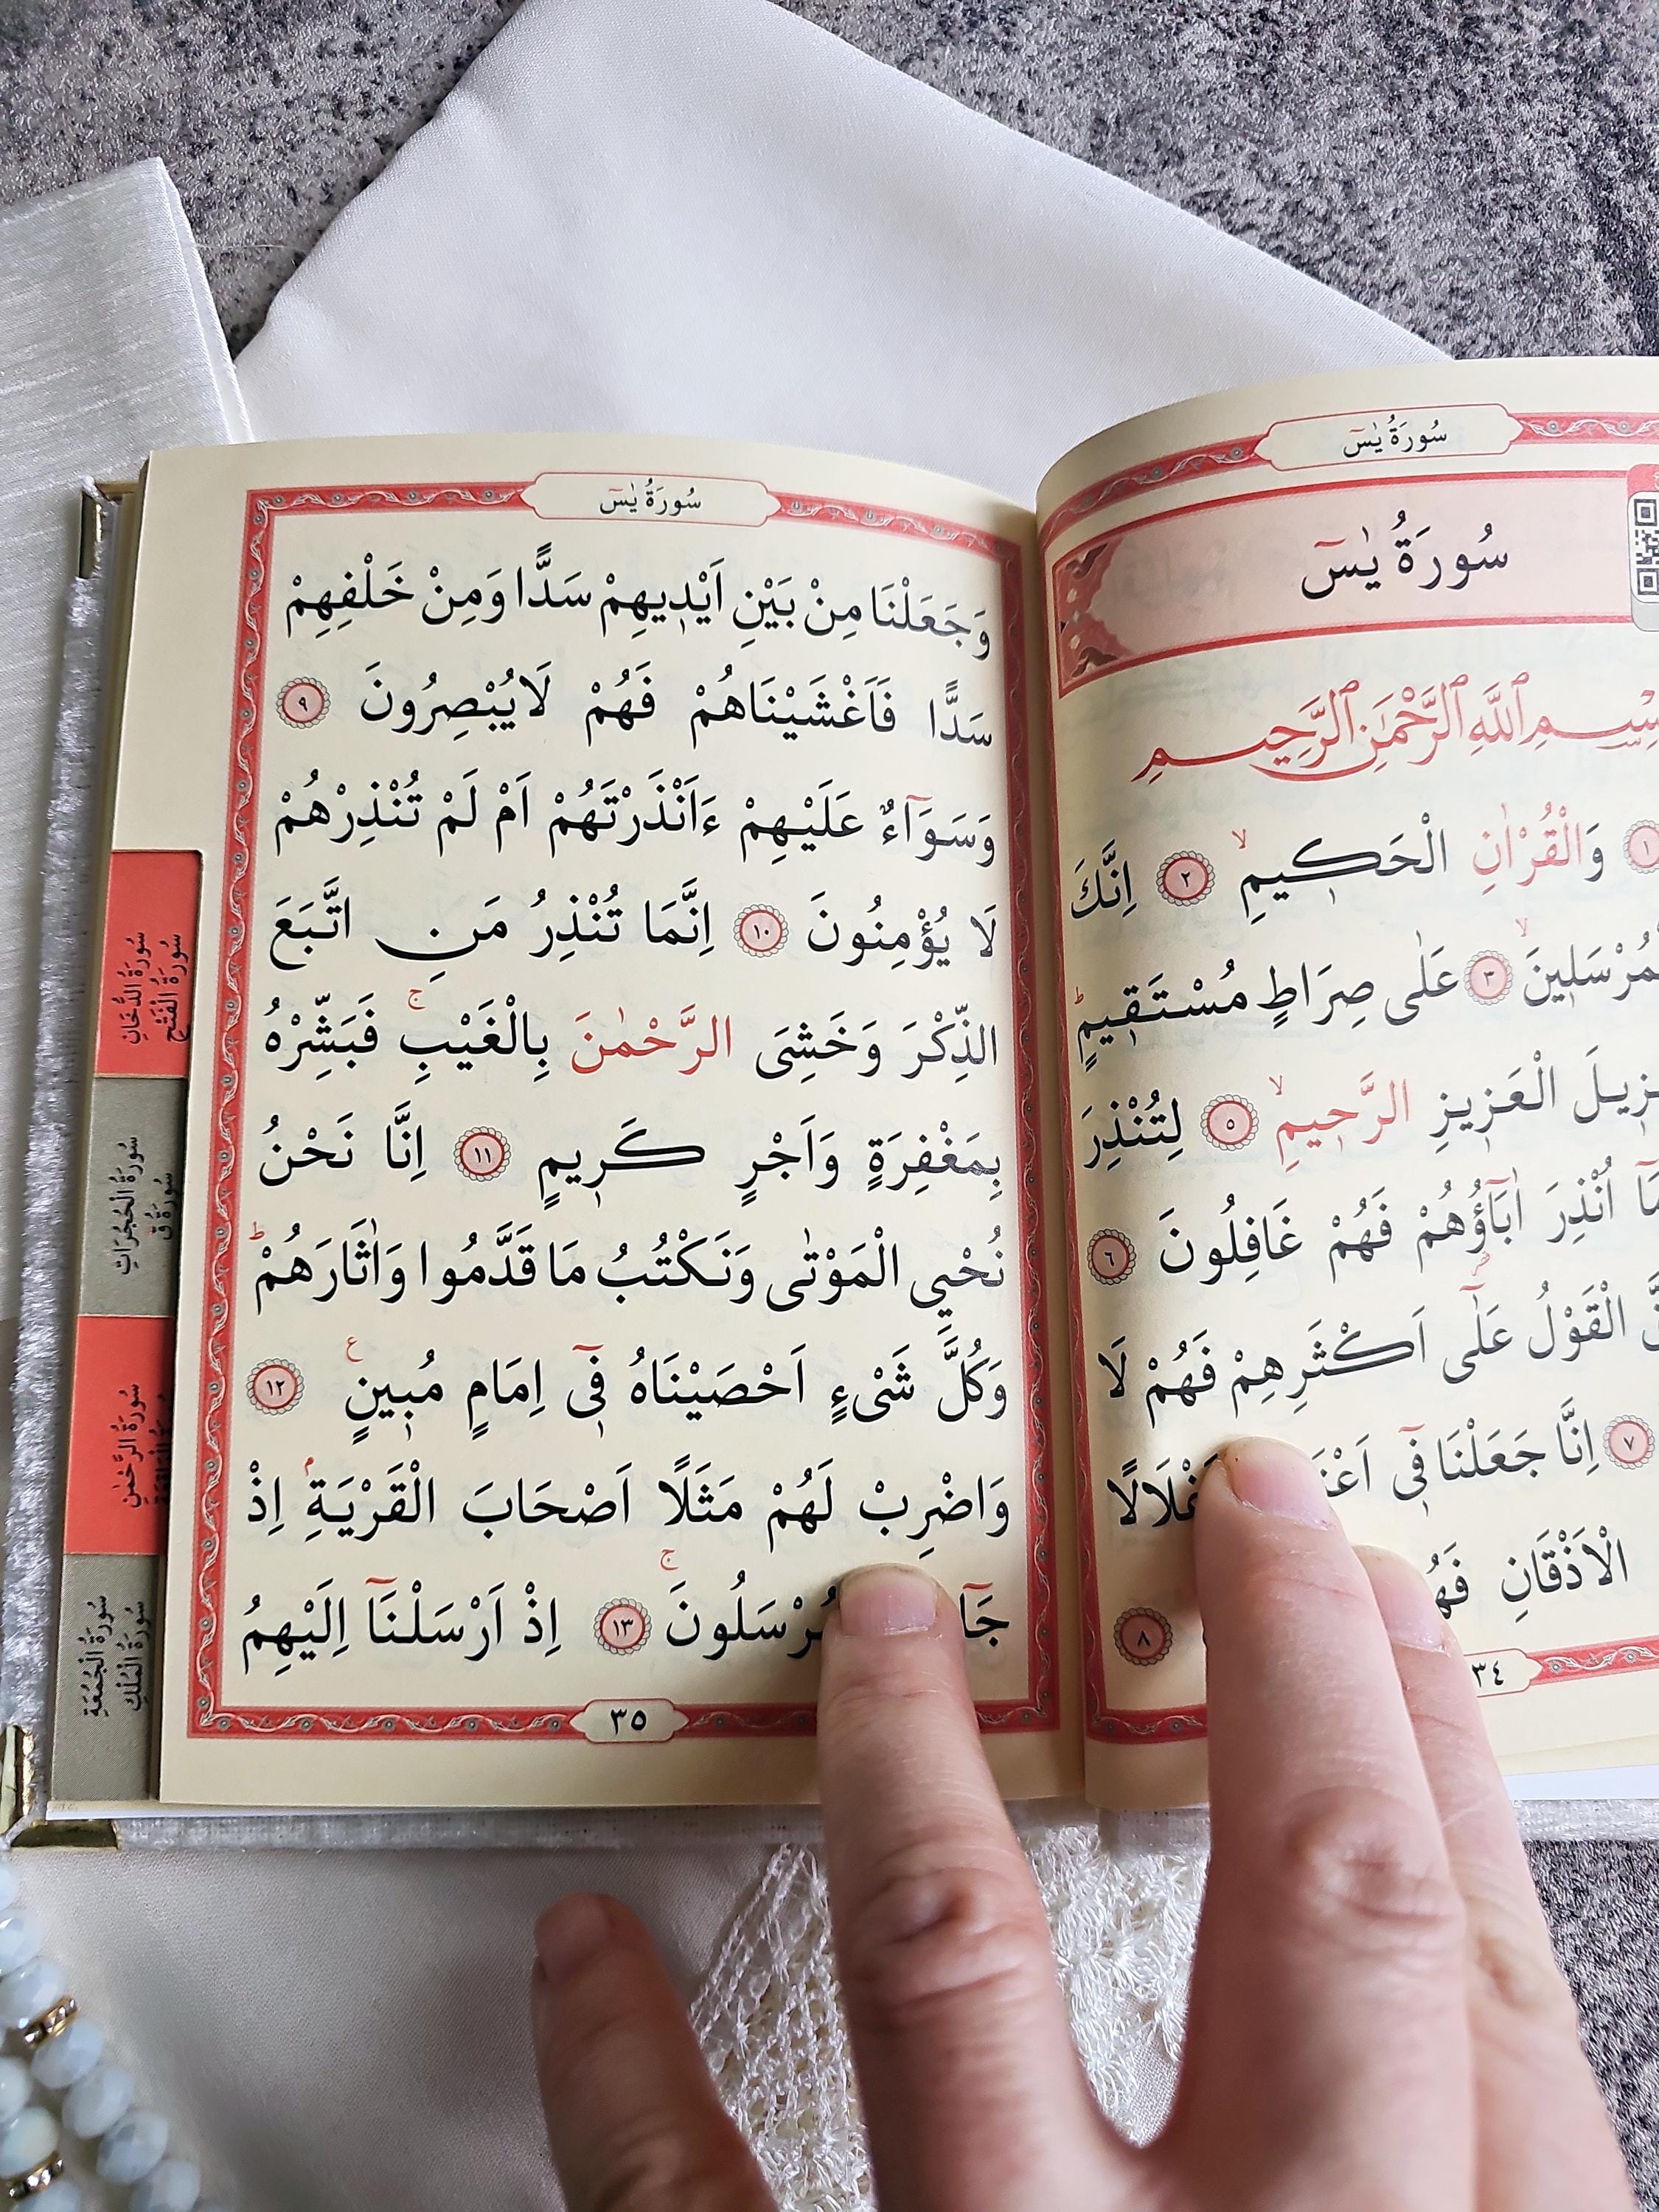 سُورَةُ يٰسٓ
سُورَةُ يٰسٓ
بِسْــمِ ٱللَّهِ ٱلرَّحْمٰنِ ٱلرَّحِيــمِ
﴿١﴾ وَالْقُرْاٰنِ الْحَكٖيمِۙ ﴿٢﴾ اِنَّكَ
﴿٣﴾ عَلٰى صِرَاطٍ مُسْتَقٖيمٍۜ
الْعَزٖيزِ الرَّحٖيمِۙ ﴿٥﴾ لِتُنْذِرَ
اُنْذِرَ اٰبَٓاؤُ۬هُمْ فَهُمْ غَافِلُونَ ﴿٦﴾
الْقَوْلُ عَلٰٓى اَكْثَرِهِمْ فَهُمْ لَا
﴿٧﴾ اِنَّا جَعَلْنَا فٖٓي
الْاَذْقَانِ
﴿٨﴾
٣٤
سُورَةُ يٰسٓ
وَجَعَلْنَا مِنْ بَيْنِ اَيْدٖيهِمْ سَدًّا وَمِنْ خَلْفِهِمْ
سَدًّا فَاَغْشَيْنَاهُمْ فَهُمْ لَايُبْصِرُونَ ﴿٩﴾
وَسَوَٓاءٌ عَلَيْهِمْ ءَاَنْذَرْتَهُمْ اَمْ لَمْ تُنْذِرْهُمْ
لَا يُؤْمِنُونَ ﴿١٠﴾ اِنَّمَا تُنْذِرُ مَنِ اتَّبَعَ
الذِّكْرَ وَخَشِيَ الرَّحْمٰنَ بِالْغَيْبِۚ فَبَشِّرْهُ
بِمَغْفِرَةٍ وَاَجْرٍ كَرٖيمٍ ﴿١١﴾ اِنَّا نَحْنُ
نُحْيِي الْمَوْتٰى وَنَكْتُبُ مَا قَدَّمُوا وَاٰثَارَهُمْۜ
وَكُلَّ شَيْءٍ اَحْصَيْنَاهُ فٖٓي اِمَامٍ مُبٖينٍ ع ﴿١٢﴾
وَاضْرِبْ لَهُمْ مَثَلًا اَصْحَابَ الْقَرْيَةِۢ اِذْ
﴿١٣﴾ اِذْ اَرْسَلْنَٓا اِلَيْهِمُ
٣٥
سُورَةُ الدُّخَانِ
سُورَةُ الْفَتْحِ
سُورَةُ الْحُجُرَاتِ
سُورَةُ قٓ
سُورَةُ الرَّحْمٰنِ
سُورَةُ الْجُمُعَةِ
سُورَةُ الْمُلْكِ